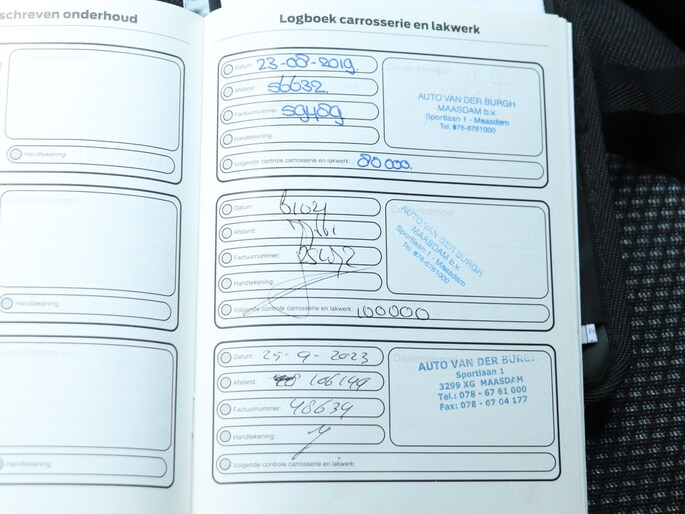 schreven onderhoud
Handtekening:
Handtekening:
Handtekening:
Logboek carrosserie en lakwerk
Datum: 23-08-2019.
Afstand: 56632.
Factuurnummer:
Handtekening:
Volgende controle carrosserie en lakwerk: 80000.
Dealerstempel
AUTO VAN DER BURGH
MAASDAM b.v.
Sportlaan 1 - Maasdam
Tel. 078-6761000
Datum:
Afstand:
Factuurnummer:
Handtekening:
Volgende controle carrosserie en lakwerk: 100000
Dealerstempel
AUTO VAN DER BURGH
MAASDAM b.v.
Sportlaan 1 - Maasdam
Tel. 078-6761000
Datum: 25-9-2023
Afstand: 106199
Factuurnummer: 48634
Handtekening:
Volgende controle carrosserie en lakwerk:
Dealerstempel
AUTO VAN DER BURGH
Sportlaan 1
3299 XG MAASDAM
Tel.: 078 - 67 61 000
Fax: 078 - 67 04 177